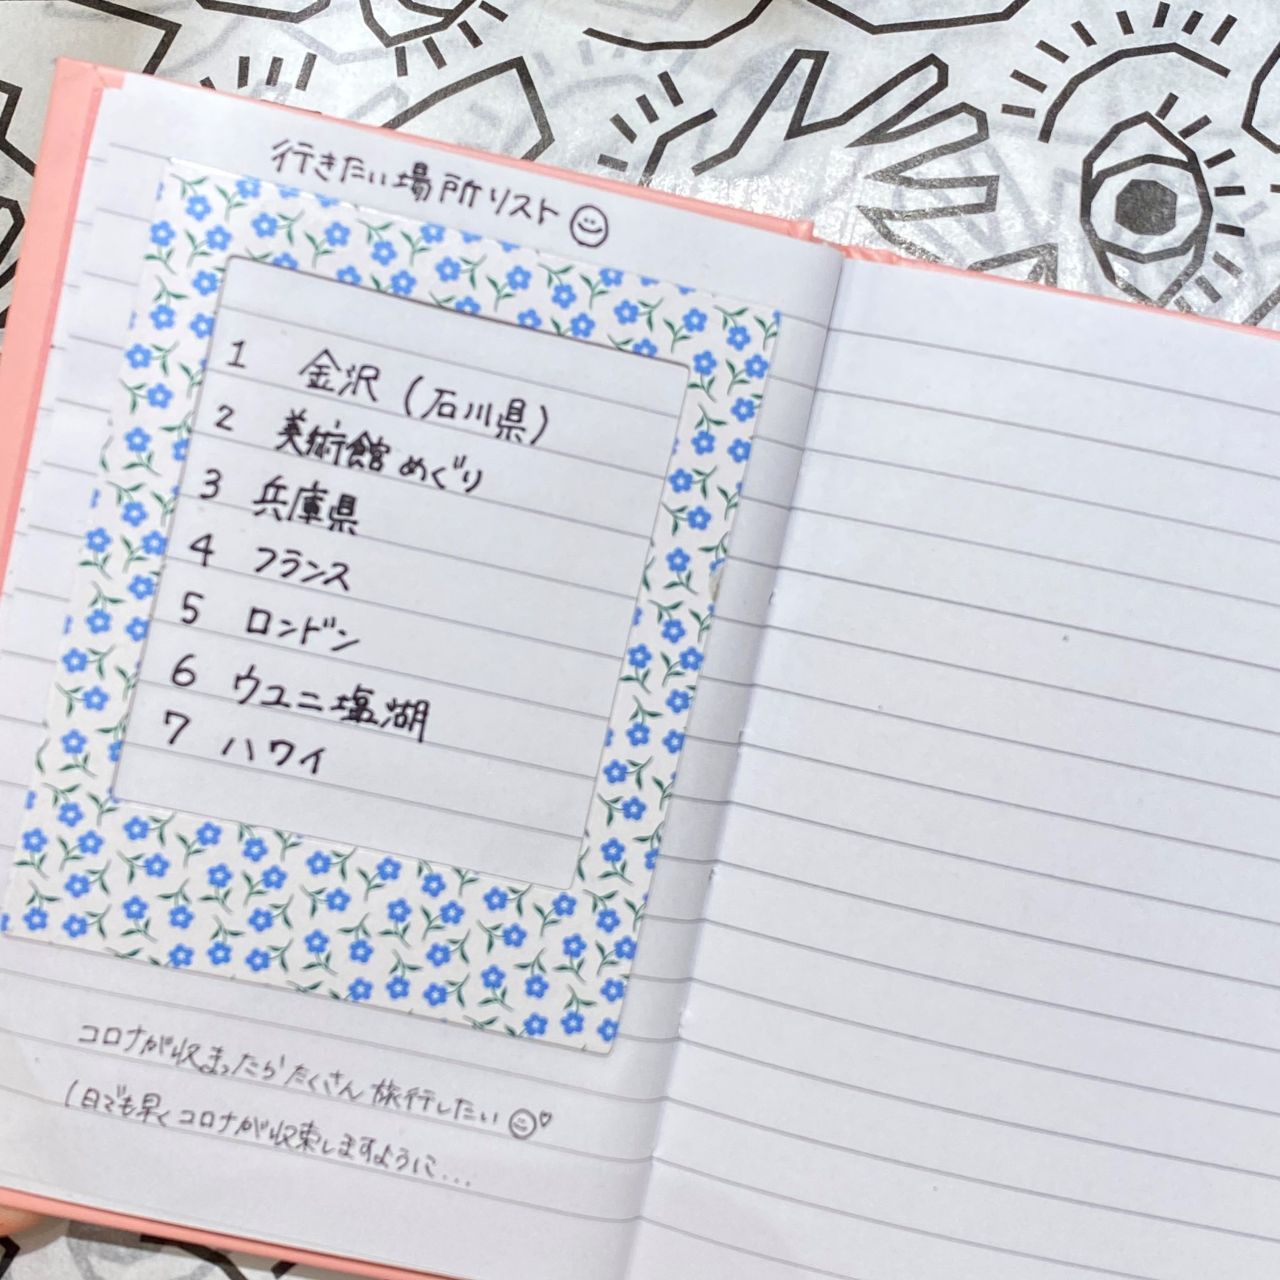 行きたい場所リスト
1 金沢（石川県）
2 美術館めぐり
3 兵庫県
4 フランス
5 ロンドン
6 ウユニ塩湖
7 ハワイ
コロナが収まったらたくさん旅行したい
1日でも早くコロナが収束しますように...